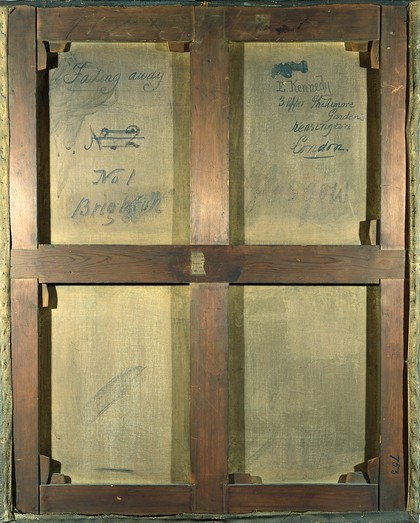 Fading away
No 1
Brighton
E Kennedy
3 Upper Phillimore
Garden
Kensington
London.
Glasgow